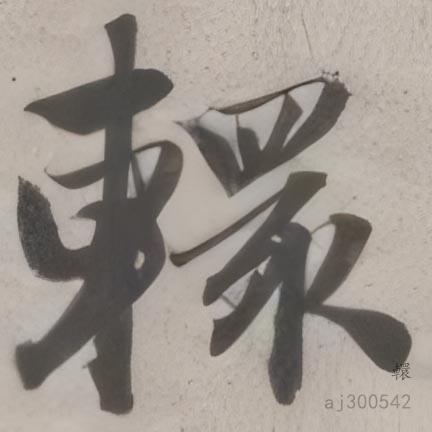 轘
轘
aj300542